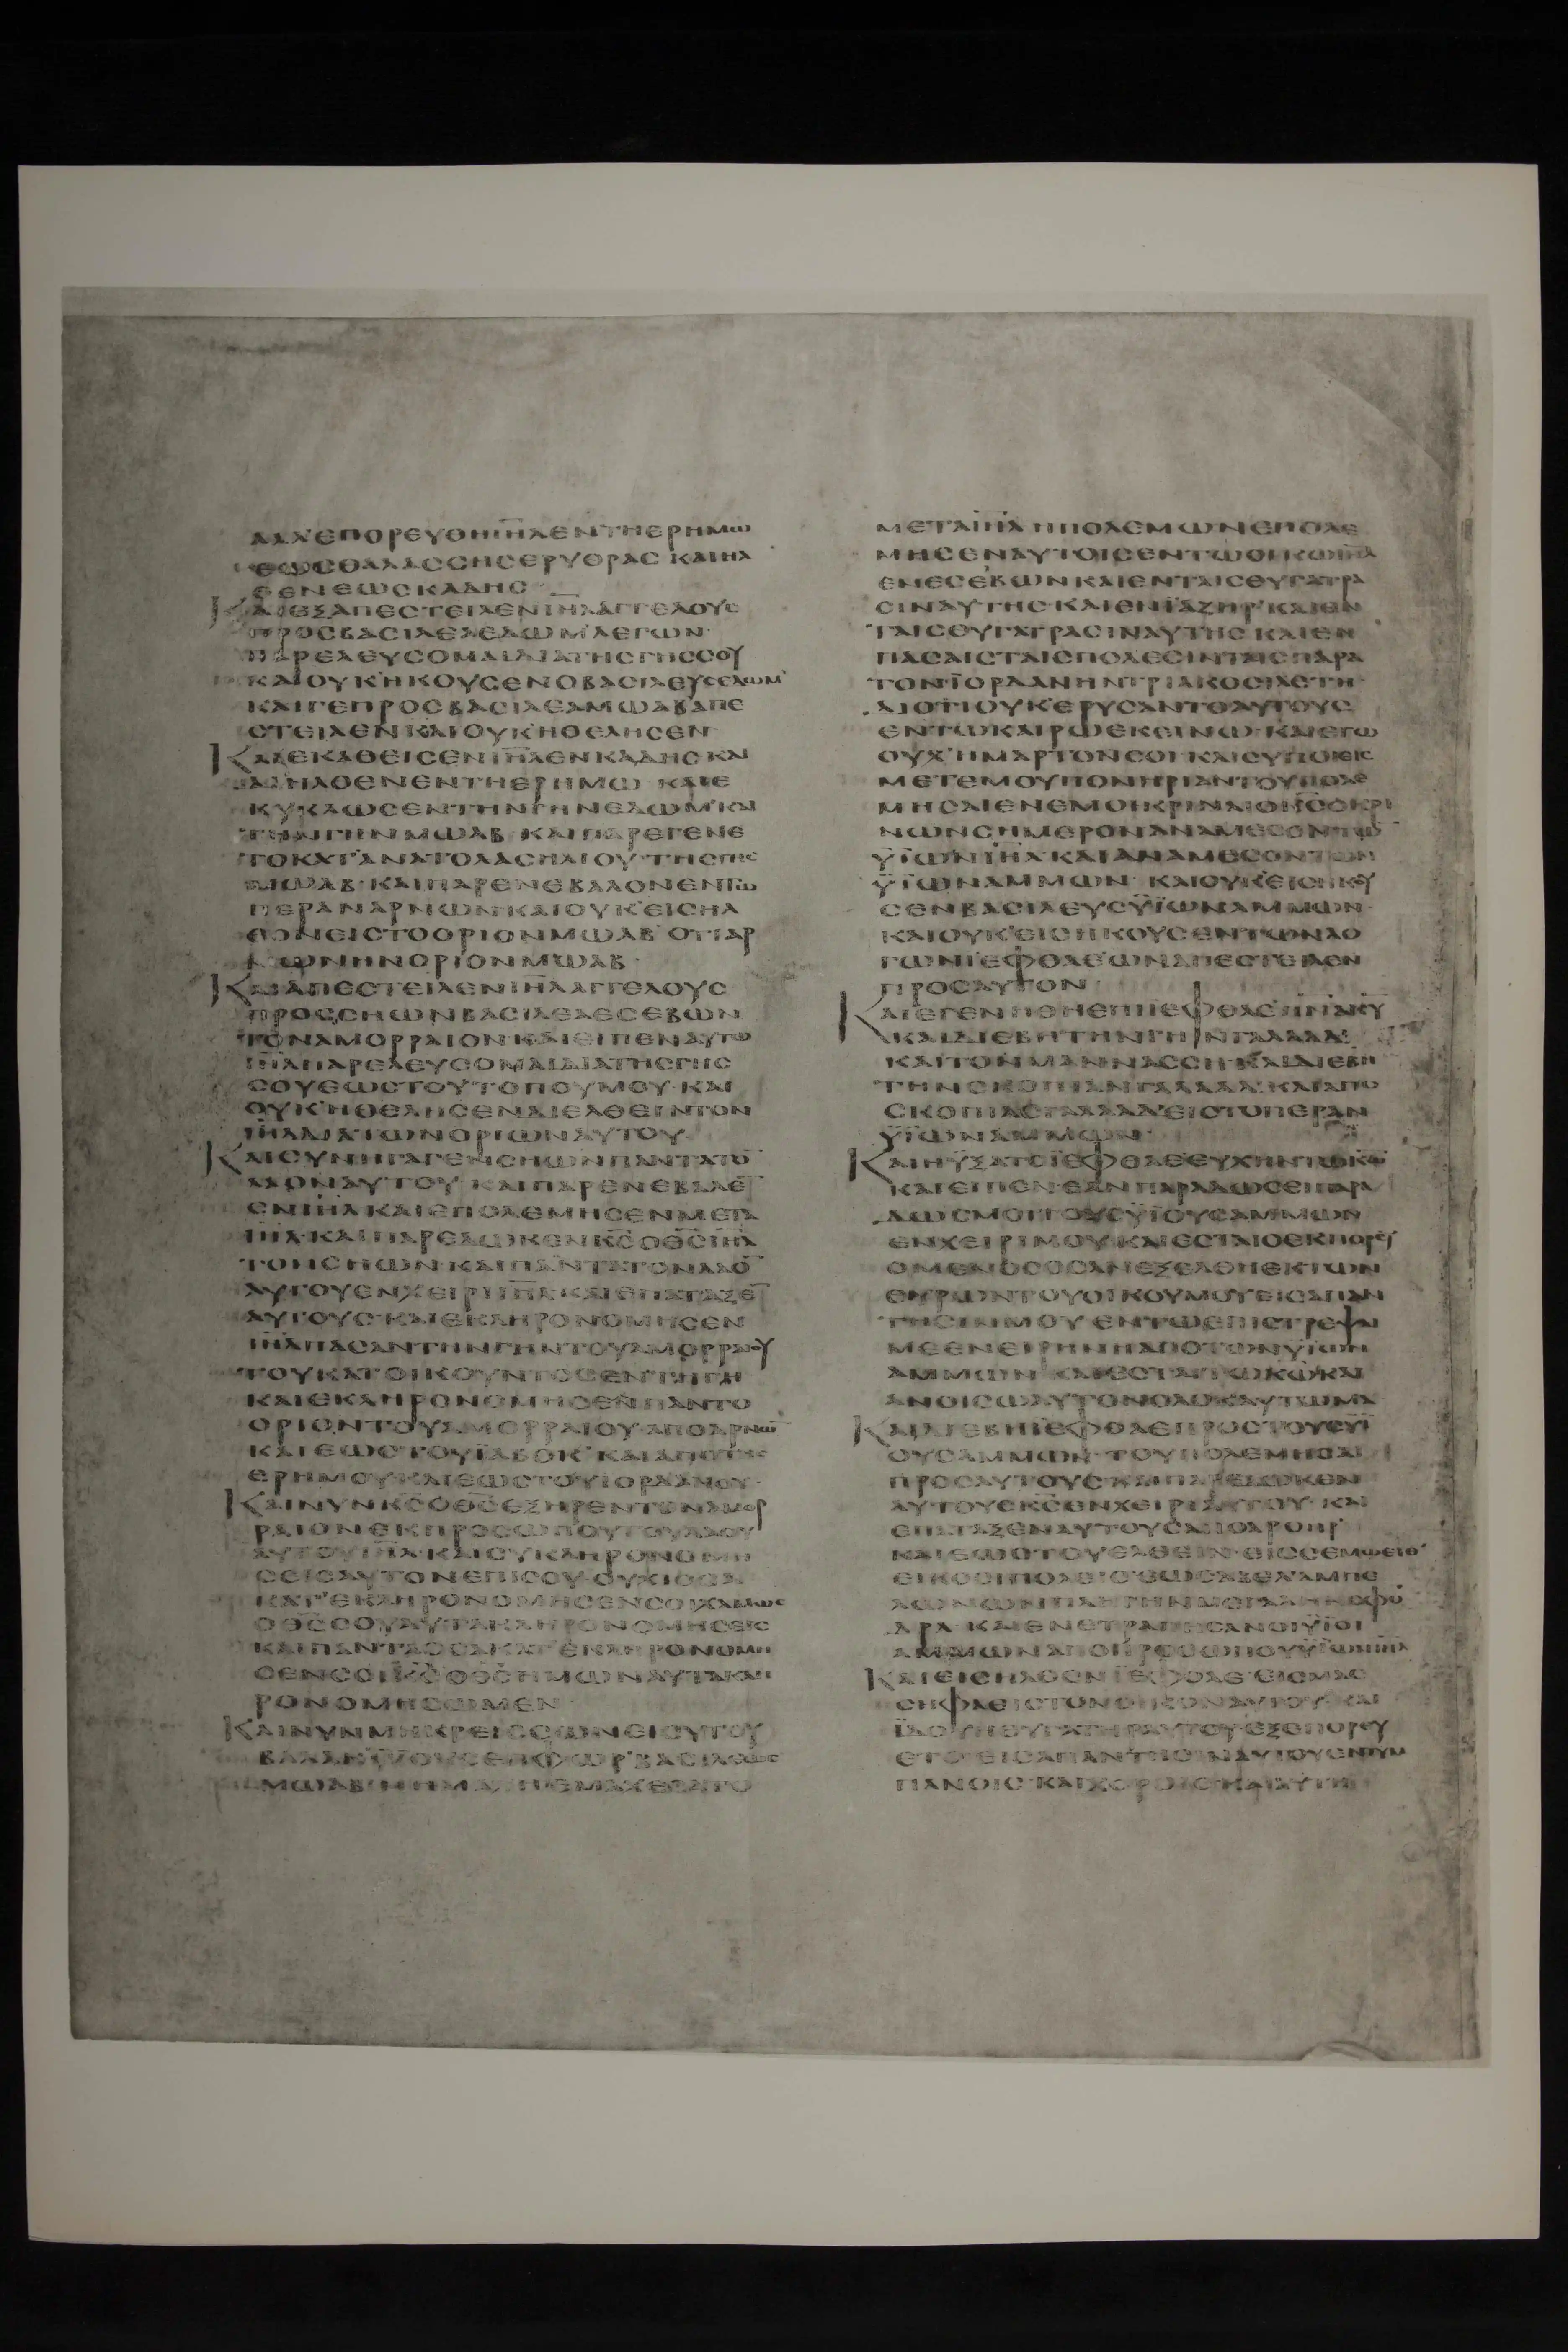 ΑΛΛΕΠΟΡΕΥΘΗΙΗΛΕΝΤΗΕΡΗΜΩ
ΕΩΣΘΑΛΑΣΣΗΣΕΡΥΘΡΑΣ ΚΑΙΗΛ
ΘΕΝΕΩΣΚΑΔΗΣ
ΚΑΙΕΞΑΠΕΣΤΕΙΛΕΝΙΗΛΑΓΓΕΛΟΥΣ
ΠΡΟΣΒΑΣΙΛΕΑΕΔΩΜ ΛΕΓΩΝ
ΠΑΡΕΛΕΥΣΟΜΑΙΔΙΑΤΗΣΓΗΣΣΟΥ
ΚΑΙΟΥΚ ΗΚΟΥΣΕΝΟΒΑΣΙΛΕΥΣΕΔΩΜ
ΚΑΙΓΕΠΡΟΣΒΑΣΙΛΕΑΜΩΑΒΑΠΕ
ΣΤΕΙΛΕΝΚΑΙΟΥΚ ΗΘΕΛΗΣΕΝ
ΚΑΙΕΚΑΘΕΙΣΕΝΙΗΛΕΝΚΑΔΗΣΚΑΙ
ΔΙΗΛΘΕΝΕΝΤΗΕΡΗΜΩ ΚΑΙΕ
ΚΥΚΛΩΣΕΝΤΗΝΓΗΝΕΔΩΜ ΚΑΙ
ΤΗΝΓΗΝΜΩΑΒ ΚΑΙΠΑΡΕΓΕΝΕ
ΤΟΚΑΤΑΝΑΤΟΛΑΣΗΛΙΟΥ ΤΗΣΓΗΣ
ΜΩΑΒ ΚΑΙΠΑΡΕΝΕΒΑΛΟΝΕΝΤΩ
ΠΕΡΑΝΑΡΝΩΝΚΑΙΟΥΚ ΕΙΣΗΛ
ΘΟΝΕΙΣΤΟΟΡΙΟΝΜΩΑΒ ΟΤΙΑΡ
ΝΩΝΗΝΟΡΙΟΝΜΩΑΒ
ΚΑΙΑΠΕΣΤΕΙΛΕΝΙΗΛΑΓΓΕΛΟΥΣ
ΠΡΟΣΣΗΩΝΒΑΣΙΛΕΑΕΣΕΒΩΝ
ΤΟΝΑΜΟΡΡΑΙΟΝ ΚΑΙΕΙΠΕΝΑΥΤΩ
ΙΗΛΠΑΡΕΛΕΥΣΟΜΑΙΔΙΑΤΗΣΓΗΣ
ΣΟΥΕΩΣΤΟΥΤΟΠΟΥΜΟΥ ΚΑΙ
ΟΥΚ ΗΘΕΛΗΣΕΝΔΙΕΛΘΕΙΝΤΟΝ
ΙΗΛΔΙΑΤΩΝΟΡΙΩΝΑΥΤΟΥ
ΚΑΙΣΥΝΗΓΑΓΕΝΣΗΩΝΠΑΝΤΑΤΟ
ΛΑΟΝΑΥΤΟΥ ΚΑΙΠΑΡΕΝΕΒΑΛΕ
ΕΝΙΗΛ ΚΑΙΕΠΟΛΕΜΗΣΕΝΜΕΤΑ
ΙΗΛ ΚΑΙΠΑΡΕΔΩΚΕΝΚΣΟΘΣΙΗΛ
ΤΟΝΣΗΩΝ ΚΑΙΠΑΝΤΑΤΟΝΛΑΟ
ΑΥΤΟΥΕΝΧΕΙΡΙΙΗΛ ΚΑΙΕΠΑΤΑΞΕ
ΑΥΤΟΥΣ ΚΑΙΕΚΛΗΡΟΝΟΜΗΣΕΝ
ΙΗΛΠΑΣΑΝΤΗΝΓΗΝΤΟΥΑΜΟΡΡΑΙΟΥ
ΤΟΥΚΑΤΟΙΚΟΥΝΤΟΣΕΝΤΗΓΗ
ΚΑΙΕΚΛΗΡΟΝΟΜΗΣΕΝΠΑΝΤΟ
ΟΡΙΟΝΤΟΥΑΜΟΡΡΑΙΟΥ ΑΠΟΑΡΝΩ
ΚΑΙΕΩΣΤΟΥΙΑΒΟΚ ΚΑΙΑΠΟΤΗΣ
ΕΡΗΜΟΥ ΚΑΙΕΩΣΤΟΥΙΟΡΔΑΝΟΥ
ΚΑΙΝΥΝΚΣΟΘΣΕΞΗΡΕΝΤΟΝΑΜΟΡ
ΡΑΙΟΝΕΚΠΡΟΣΩΠΟΥΤΟΥΛΑΟΥ
ΑΥΤΟΥΙΗΛ ΚΑΙΣΥΚΛΗΡΟΝΟΜΗ
ΣΕΙΣΑΥΤΟΝΕΠΙΣΟΥ ΟΥΧΙΟΣΑ
ΚΑΤΕΚΛΗΡΟΝΟΜΗΣΕΝΣΟΙΧΑΜΩΣ
ΟΘΣΣΟΥΑΥΤΑΚΛΗΡΟΝΟΜΗΣΕΙΣ
ΚΑΙΠΑΝΤΑΟΣΑΚΑΤΕΚΛΗΡΟΝΟΜΗ
ΣΕΝΣΟΙΚΣΟΘΣΗΜΩΝΑΥΤΑΚΛΗ
ΡΟΝΟΜΗΣΟΜΕΝ
ΚΑΙΝΥΝΜΗΚΡΕΙΣΣΩΝΕΙΣΥΤΟΥ
ΒΑΛΑΚΥΙΟΥΣΕΠΦΩΡ ΒΑΣΙΛΕΩΣ
ΜΩΑΒ ΜΗΜΑΧΗΕΜΑΧΕΣΑΤΟ
ΜΕΤΑΙΗΛ ΗΠΟΛΕΜΩΝΕΠΟΛΕ
ΜΗΣΕΝΑΥΤΟΙΣΕΝΤΩΟΙΚΩΙΗΛ
ΕΝΕΣΕΒΩΝ ΚΑΙΕΝΤΑΙΣΘΥΓΑΤΡΑ
ΣΙΝΑΥΤΗΣ ΚΑΙΕΝΙΑΖΗΡ ΚΑΙΕΝ
ΤΑΙΣΘΥΓΑΤΡΑΣΙΝΑΥΤΗΣ ΚΑΙΕΝ
ΠΑΣΑΙΣΤΑΙΣΠΟΛΕΣΙΝΤΑΙΣΠΑΡΑ
ΤΟΝΙΟΡΔΑΝΗΝΤΡΙΑΚΟΣΙΑΕΤΗ
ΔΙΟΤΙΟΥΚ ΕΡΥΣΑΝΤΟΑΥΤΟΥΣ
ΕΝΤΩΚΑΙΡΩΕΚΕΙΝΩ ΚΑΙΕΓΩ
ΟΥΧ ΗΜΑΡΤΟΝΣΟΙ ΚΑΙΣΥΠΟΙΕΙΣ
ΜΕΤΕΜΟΥΠΟΝΗΡΙΑΝΤΟΥΠΟΛΕ
ΜΗΣΑΙΕΝΕΜΟΙΚΡΙΝΑΙΟΚΣΟΚΡΙ
ΝΩΝΣΗΜΕΡΟΝΑΝΑΜΕΣΟΝΤΩ
ΥΙΩΝΙΗΛ ΚΑΙΑΝΑΜΕΣΟΝΤΩΝ
ΥΙΩΝΑΜΜΩΝ ΚΑΙΟΥΚ ΕΙΣΗΚΟΥ
ΣΕΝΒΑΣΙΛΕΥΣΥΙΩΝΑΜΜΩΝ
ΚΑΙΟΥΚ ΕΙΣΗΚΟΥΣΕΝΤΩΝΛΟ
ΓΩΝΙΕΦΘΑΕ ΩΝΑΠΕΣΤΕΙΛΕΝ
ΠΡΟΣΑΥΤΟΝ
ΚΑΙΕΓΕΝΗΘΗΕΠΙΙΕΦΘΑΕΠΝΑΚΥ
ΚΑΙΔΙΕΒΗΤΗΝΓΗΝΓΑΛΑΑΔ
ΚΑΙΤΟΝΜΑΝΝΑΣΣΗ ΚΑΙΔΙΕΒΗ
ΤΗΝΣΚΟΠΙΑΝΓΑΛΑΑΔ ΚΑΙΑΠΟ
ΣΚΟΠΙΑΣΓΑΛΑΑΔ ΕΙΣΤΟΠΕΡΑΝ
ΥΙΩΝΑΜΜΩΝ
ΚΑΙΗΥΞΑΤΟΙΕΦΘΑΕΕΥΧΗΝΤΩΚΩ
ΚΑΙΕΙΠΕΝ ΕΑΝΠΑΡΑΔΩΣΕΙΠΑΡΑ
ΔΩΣΜΟΙΤΟΥΣΥΙΟΥΣΑΜΜΩΝ
ΕΝΧΕΙΡΙΜΟΥ ΚΑΙΕΣΤΑΙΟΕΚΠΟΡΕΥ
ΟΜΕΝΟΣΟΣΑΝΕΞΕΛΘΗΕΚΤΩΝ
ΘΥΡΩΝΤΟΥΟΙΚΟΥΜΟΥΕΙΣΑΠΑΝ
ΤΗΣΙΝΜΟΥ ΕΝΤΩΕΠΙΣΤΡΕΨΑΙ
ΜΕΕΝΕΙΡΗΝΗΑΠΟΤΩΝΥΙΩΝ
ΑΜΜΩΝ ΚΑΙΕΣΤΑΙΤΩΚΩΚΑΙ
ΑΝΟΙΣΩΑΥΤΟΝΟΛΟΚΑΥΤΩΜΑ
ΚΑΙΔΙΕΒΗΙΕΦΘΑΕΠΡΟΣΤΟΥΣΥΙ
ΟΥΣΑΜΜΩΝ ΤΟΥΠΟΛΕΜΗΣΑΙ
ΠΡΟΣΑΥΤΟΥΣ ΚΑΙΠΑΡΕΔΩΚΕΝ
ΑΥΤΟΥΣΚΣΕΝΧΕΙΡΙΑΥΤΟΥ ΚΑΙ
ΕΠΑΤΑΞΕΝΑΥΤΟΥΣΑΠΟΑΡΟΗΡ
ΚΑΙΕΩΣΤΟΥΕΛΘΕΙΝ ΕΙΣΣΕΜΩΕΙΘ
ΕΙΚΟΣΙΠΟΛΕΙΣ ΕΩΣΑΒΕΛ ΑΜΠΕ
ΛΩΝΩΝΠΛΗΓΗΝΜΕΓΑΛΗΝΣΦΟ
ΔΡΑ ΚΑΙΕΝΕΤΡΑΠΗΣΑΝΟΙΥΙΟΙ
ΑΜΜΩΝΑΠΟΠΡΟΣΩΠΟΥΥΙΩΝΙΗΛ
ΚΑΙΕΙΣΗΛΘΕΝΙΕΦΘΑΕ ΕΙΣΜΑΣ
ΣΗΦΑΕΙΣΤΟΝΟΙΚΟΝΑΥΤΟΥ ΚΑΙ
ΙΔΟΥΗΘΥΓΑΤΗΡΑΥΤΟΥΕΞΕΠΟΡΕΥ
ΕΤΟ ΕΙΣΑΠΑΝΤΗΣΙΝΑΥΤΟΥΕΝΤΥΜ
ΠΑΝΟΙΣ ΚΑΙΧΟΡΟΙΣ ΚΑΙΑΥΤΗ